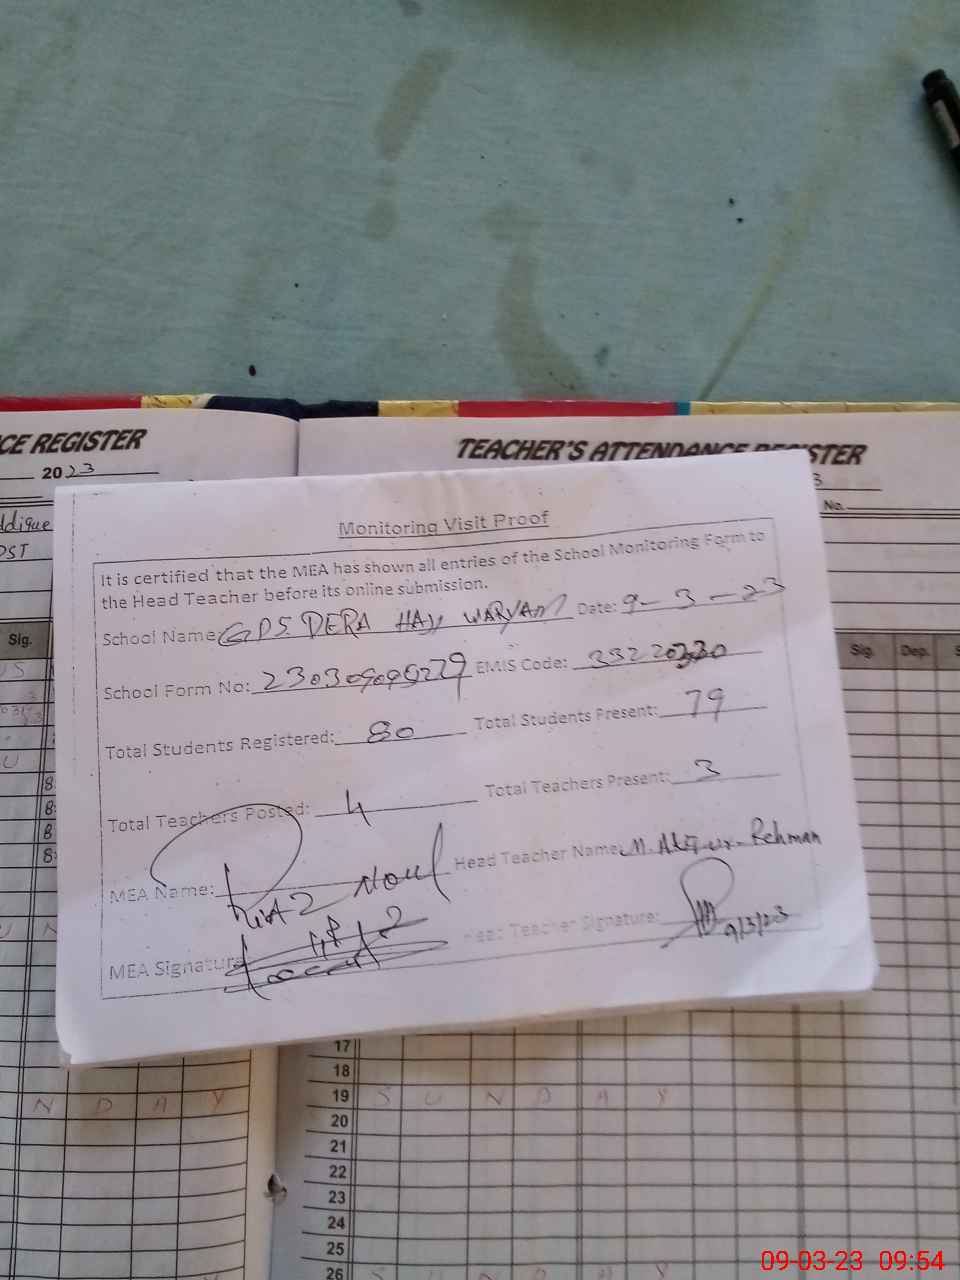 CE REGISTER
2023
TEACHER'S ATTENDANCE REGISTER
3
No.
ddique
PST
Sig.
Monitoring Visit Proof
It is certified that the MEA has shown all entries of the School Monitoring Form to
the Head Teacher before its online submission.
School Name: GPS DERA HAJI WARYAM Date: 9-3-23
School Form No: EMIS Code: 33220330
Total Students Registered: 80 Total Students Present: 79
Total Teachers Posted: 4 Total Teachers Present: 3
MEA Name: Head Teacher Name: M. Rehman
MEA Signature Head Teacher Signature: 9/3/23
Sig. Dep. S
8
8
8
8
17
18
N D A Y 19 S U N D A Y
20
21
22
23
24
25
26 S U N D A Y
09-03-23 09:54